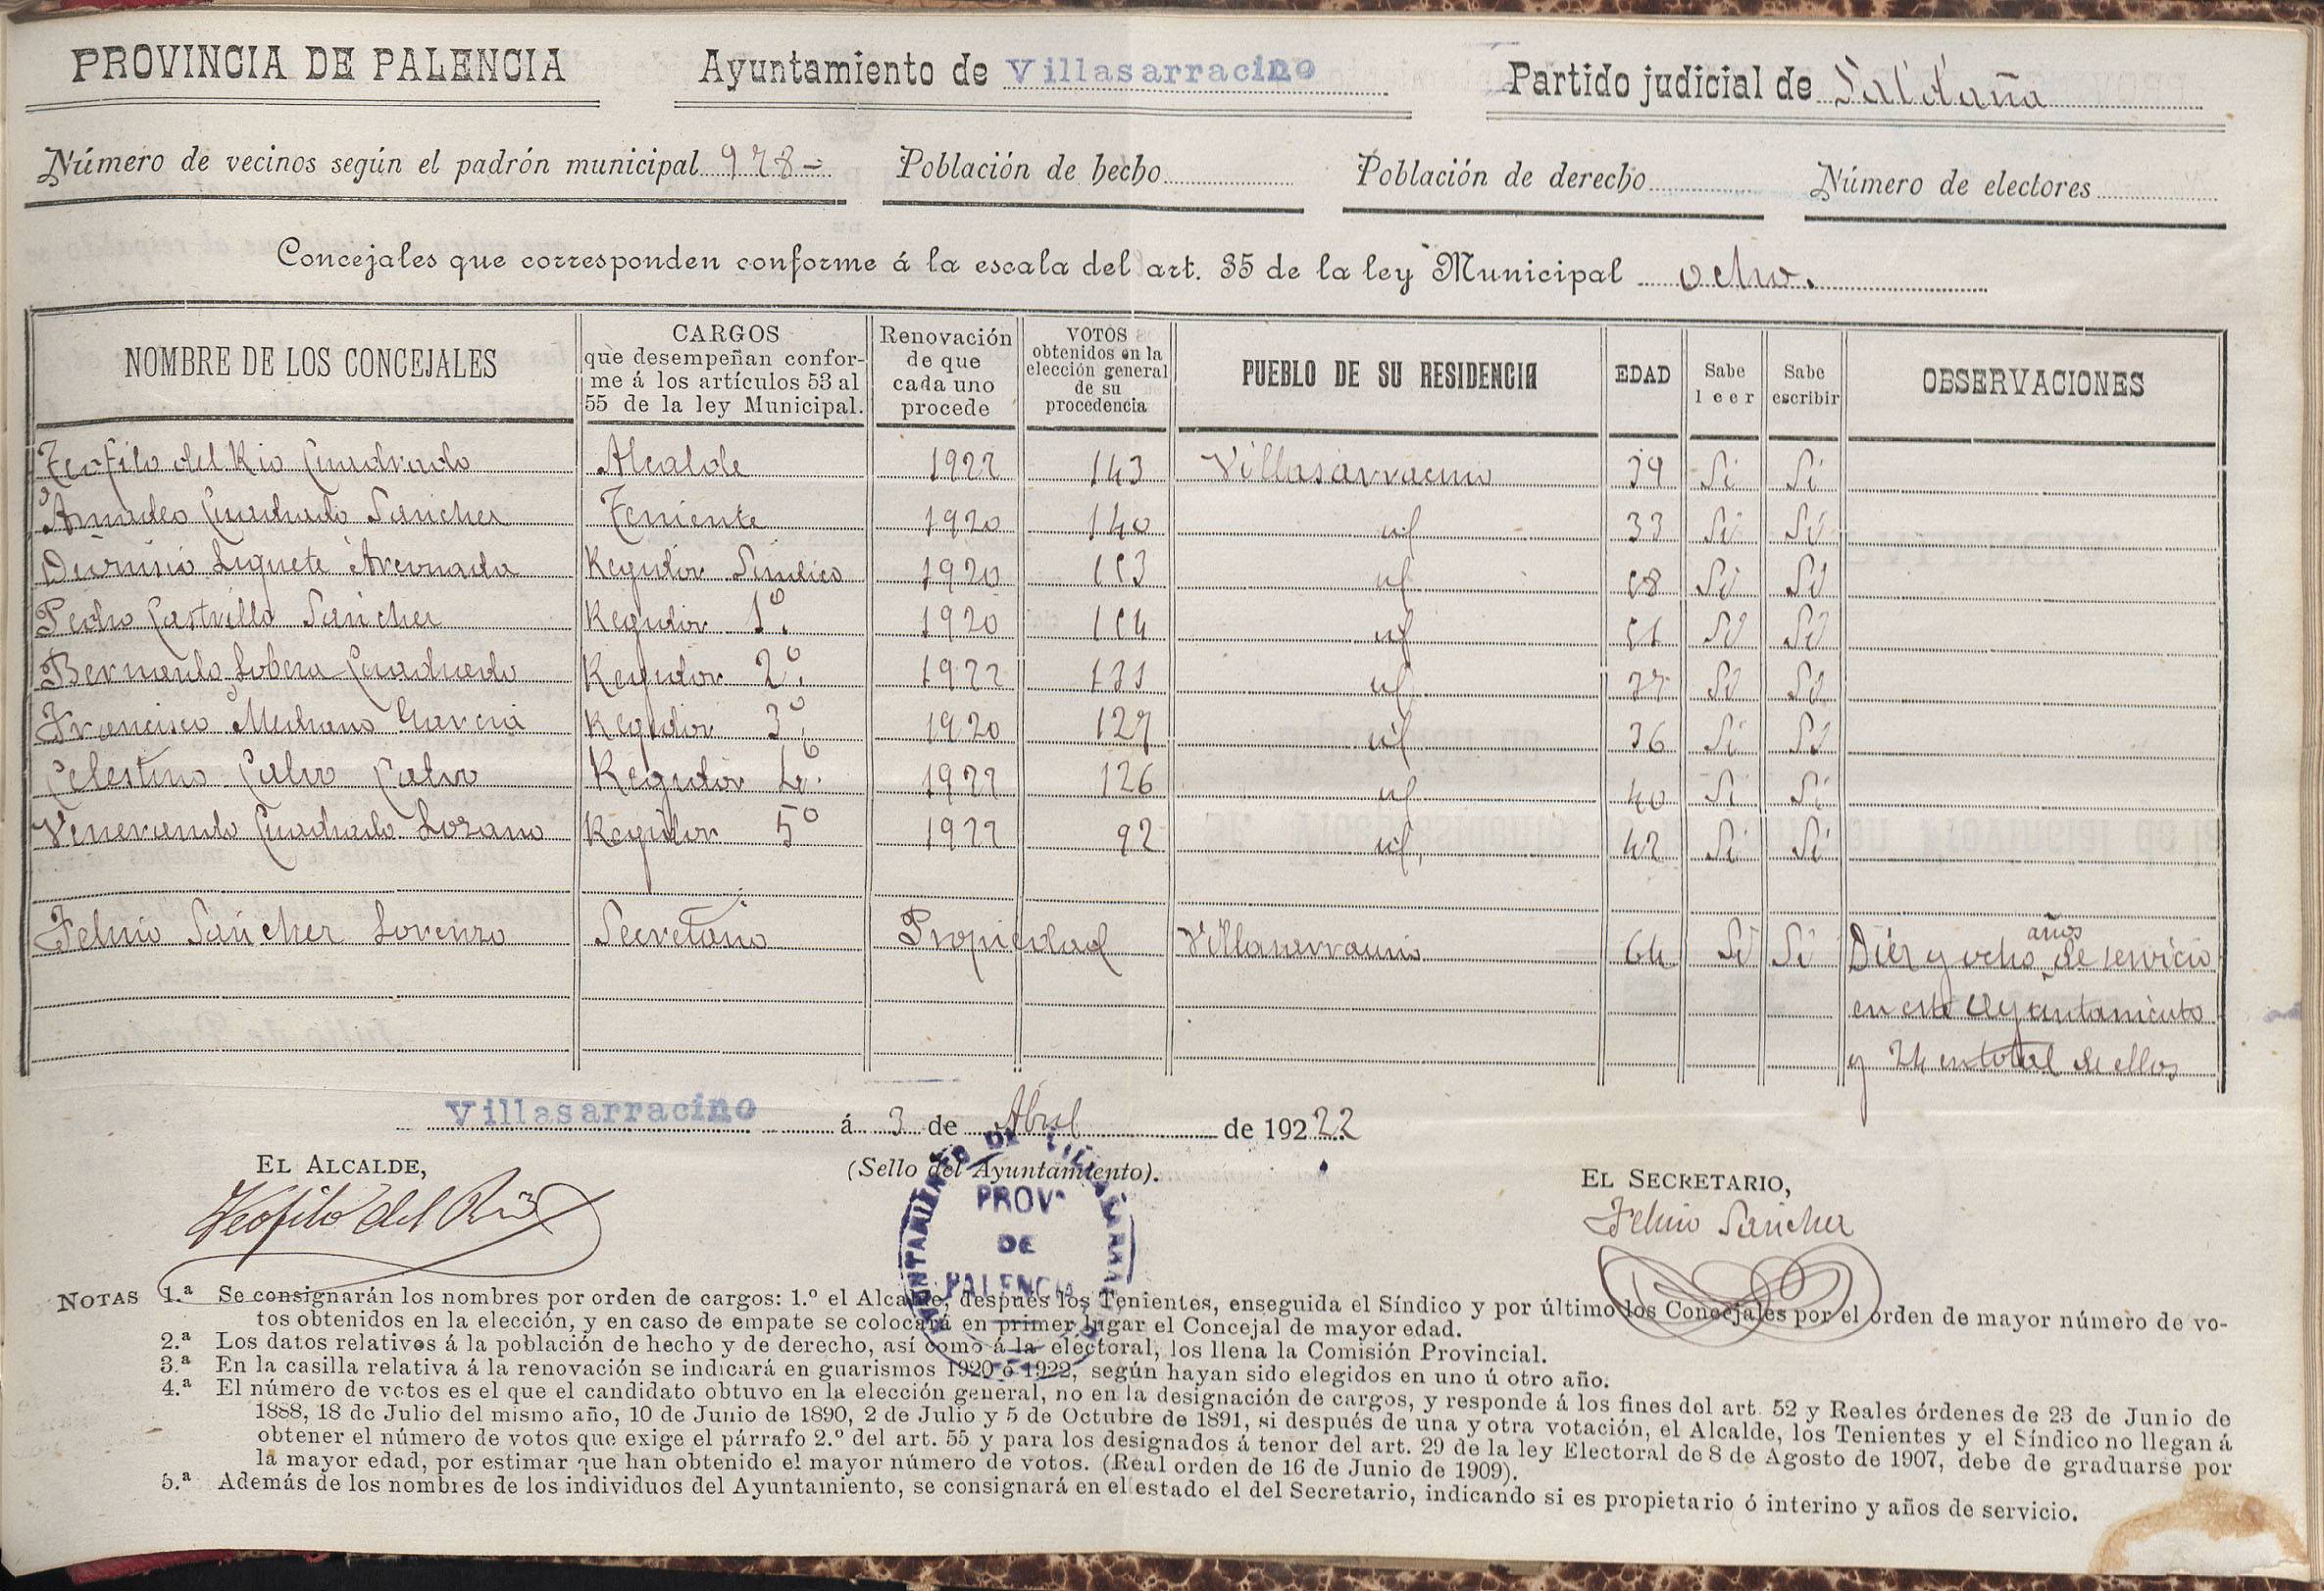 PROVINCIA DE PALENCIA Ayuntamiento de Villasarracino Partido judicial de Saldaña
Número de vecinos según el padrón municipal 978 Población de hecho Población de derecho Número de electores
Concejales que corresponden conforme á la escala del art. 35 de la ley Municipal ocho.
NOMBRE DE LOS CONCEJALES
CARGOS
que desempeñan confor-
me á los artículos 53 al
55 de la ley Municipal.
Renovación
de que
cada uno
procede
VOTOS
obtenidos en la
elección general
de su
procedencia
PUEBLO DE SU RESIDENCIA
EDAD
Sabe
leer
Sabe
escribir
OBSERVACIONES
Teofilo del Rio Cuadrado Alcalde 1922 143 Villasarracino 39 Si Si
Amadeo Cuadrado Sanchez Teniente 1920 140 id 33 Si Si
Dionisio Regidor Sindico 1920 153 id 58 Si Si
Pedro Castrillo Sanchez Regidor 1º. 1920 154 id 51 Si Si
Bernardo Lobera Cuadrado Regidor 2º. 1922 131 id 37 Si Si
Francisco Medrano Garcia Regidor 3º. 1920 127 id 36 Si Si
Celestino Calvo Calvo Regidor 4º. 1922 126 id 40 Si Si
Venerando Cuadrado Lozano Regidor 5º 1922 92 id, 42 Si Si
Sanchez Lorenzo Secretario Propiedad Villasarracino 64 Si Si Diez y ocho años de servicio
en este Ayuntamiento
y 24 en total de ellos
Villasarracino á 3 de Abril de 192 22
EL ALCALDE,
(Sello del Ayuntamiento).
EL SECRETARIO,
Teofilo del Rio
Sanchez
AYUNTAMIENTO DE
PROVª
DE
PALENCIA
NOTAS 1.ª Se consignarán los nombres por orden de cargos: 1.º el Alcalde, después los Tenientes, enseguida el Síndico y por último los Concejales por el orden de mayor número de vo-
tos obtenidos en la elección, y en caso de empate se colocará en primer lugar el Concejal de mayor edad.
2.ª Los datos relativos á la población de hecho y de derecho, así como á la electoral, los llena la Comisión Provincial.
3.ª En la casilla relativa á la renovación se indicará en guarismos 1920 ó 1922, según hayan sido elegidos en uno ú otro año.
4.ª El número de votos es el que el candidato obtuvo en la elección general, no en la designación de cargos, y responde á los fines del art. 52 y Reales órdenes de 23 de Junio de
1888, 18 de Julio del mismo año, 10 de Junio de 1890, 2 de Julio y 5 de Octubre de 1891, si después de una y otra votación, el Alcalde, los Tenientes y el Síndico no llegan á
obtener el número de votos que exige el párrafo 2.º del art. 55 y para los designados á tenor del art. 29 de la ley Electoral de 8 de Agosto de 1907, debe de graduarse por
la mayor edad, por estimar que han obtenido el mayor número de votos. (Real orden de 16 de Junio de 1909).
5.ª Además de los nombres de los individuos del Ayuntamiento, se consignará en el estado el del Secretario, indicando si es propietario ó interino y años de servicio.